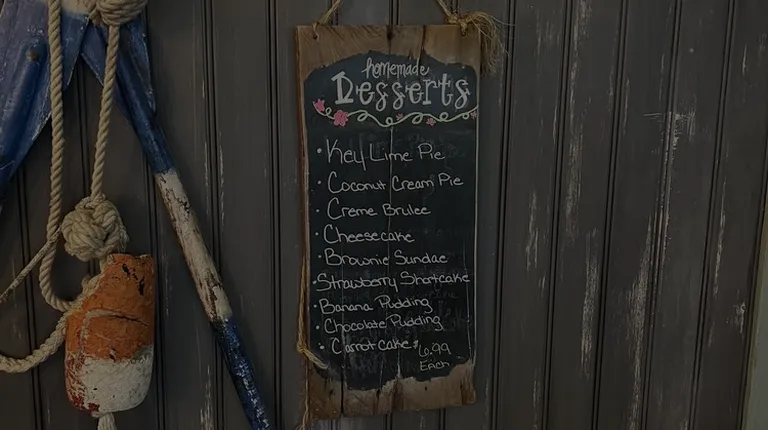 homemade
Desserts
• Key Lime Pie
• Coconut Cream Pie
• Creme Brulee
• Cheesecake
• Brownie Sundae
• Strawberry Shortcake
• Banana Pudding
• Chocolate Pudding
• Carrot cake $6.99
Each